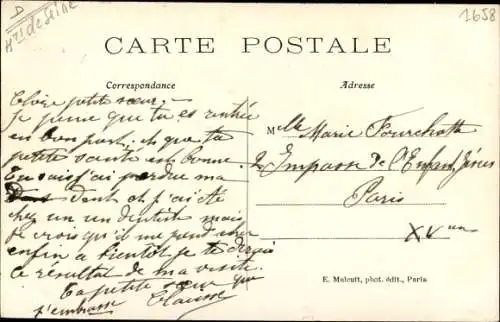 1658
CARTE POSTALE
Correspondance
Adresse
Chère petite sœur,
Je pense que tu es rentrée
en bon port, et que ta
petite santé est bonne.
Tu sais j'ai perdue ma
dent et j'ai été
chez un un dentiste mais
je crois qu'il me
enfin a bientôt je te dirais
le résultat de ma visite.
Ta petite sœur qui
t'embrasse
Melle Marie Fourchotte
Impasse de l'Enfant Jésus
Paris
XVe
E. Malcuit, phot. édit., Paris